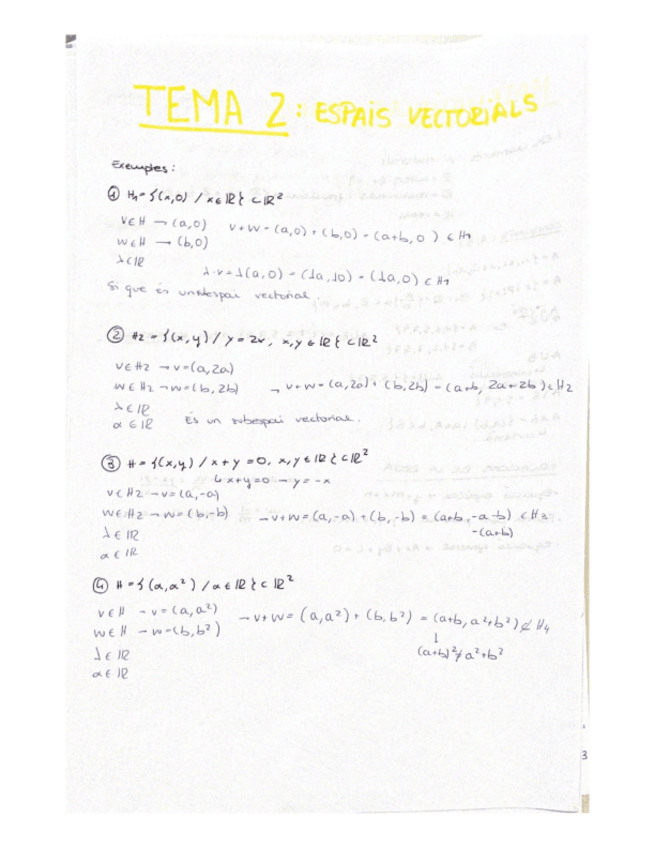 TEMA 2: ESPAIS VECTORIALS
Exemples:
① H₁ = {(x,0) / x ∈ ℝ} ⊂ ℝ²
v ∈ H → (a,0)   v+w = (a,0) + (b,0) = (a+b, 0) ∈ H₁
w ∈ H → (b,0)
λ ∈ ℝ
λ·v = λ(a,0) = (λa, λ0) = (λa,0) ∈ H₁
Si que és un subespai vectorial.
② H₂ = {(x,y) / y = 2x, x,y ∈ ℝ} ⊂ ℝ²
v ∈ H₂ → v = (a,2a)
w ∈ H₂ → w = (b,2b)   → v+w = (a,2a) + (b,2b) = (a+b, 2a+2b) ∈ H₂
λ ∈ ℝ
α ∈ ℝ   És un subespai vectorial.
③ H = {(x,y) / x+y = 0, x,y ∈ ℝ} ⊂ ℝ²
↳ x+y=0 → y = -x
v ∈ H₂ → v = (a,-a)
w ∈ H₂ → w = (b,-b)   → v+w = (a,-a) + (b,-b) = (a+b, -a-b) ∈ H₃
λ ∈ ℝ   -(a+b)
α ∈ ℝ
④ H = {(α,α²) / α ∈ ℝ} ⊂ ℝ²
v ∈ H → v = (a,a²)   → v+w = (a,a²) + (b,b²) = (a+b, a²+b²) ∉ H₄
w ∈ H → w = (b,b²)   ↓
λ ∈ ℝ   (a+b)² ≠ a²+b²
α ∈ ℝ
3